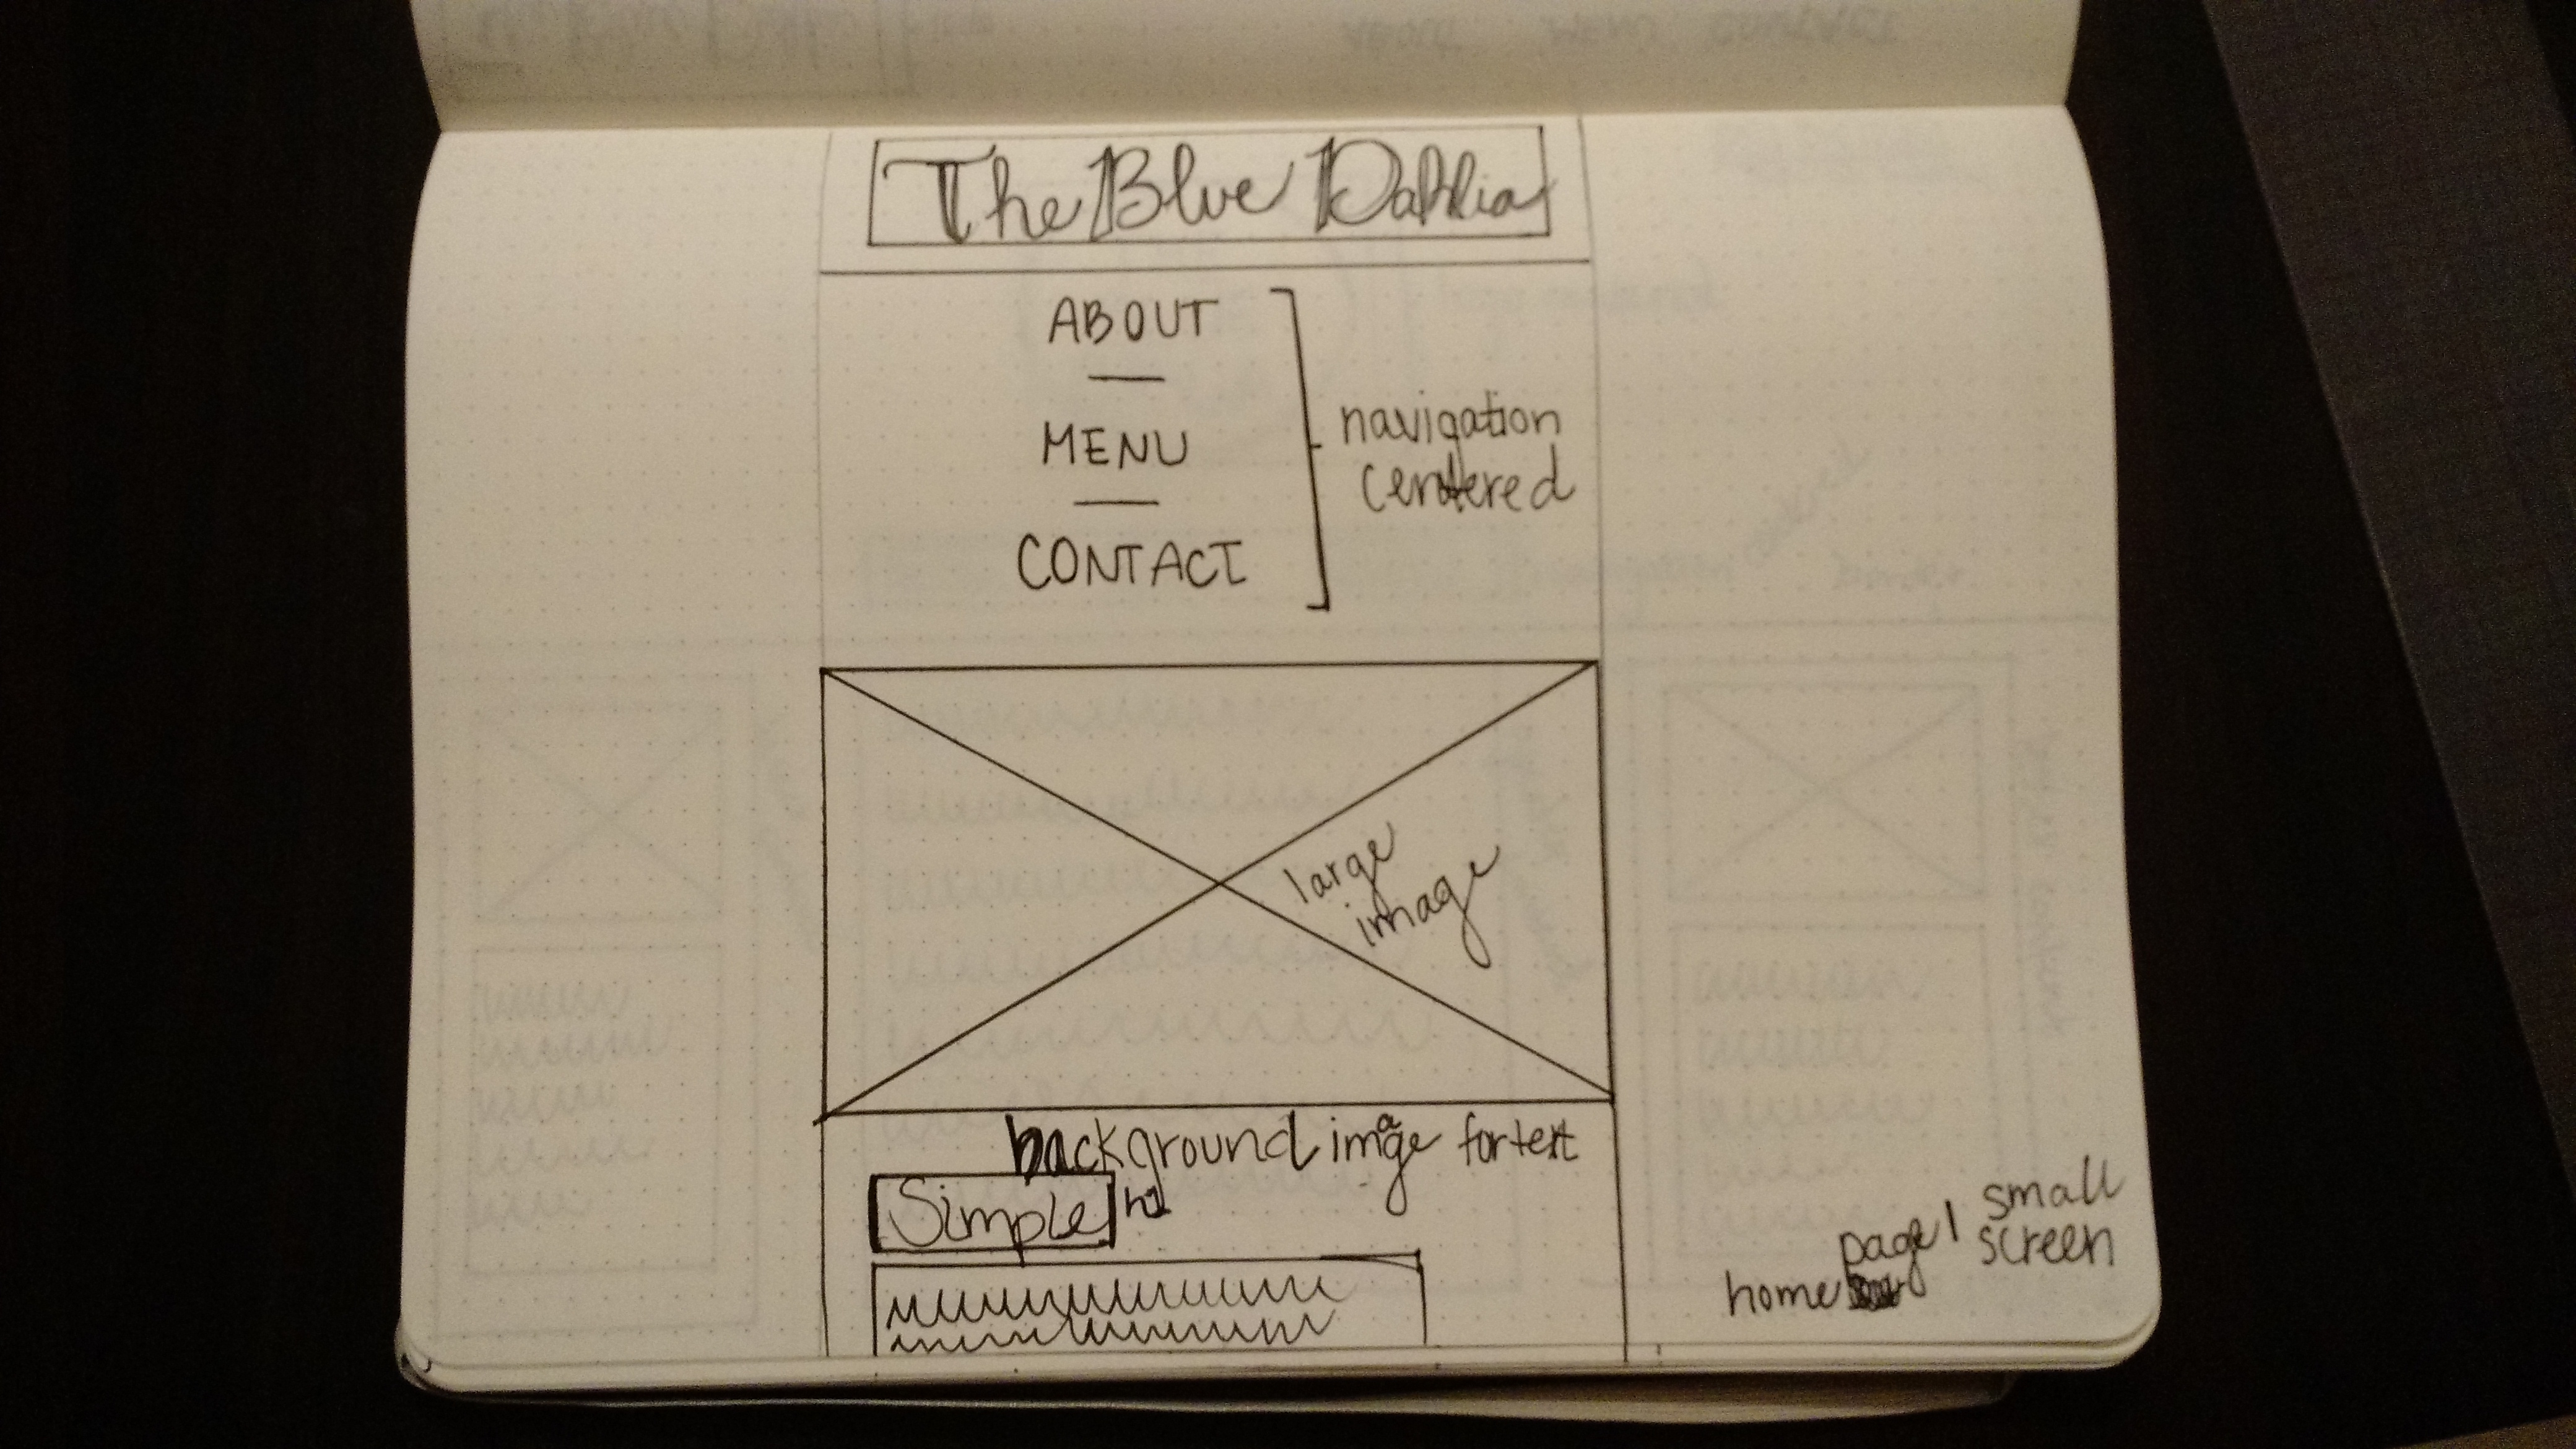 The Blue Dahlia
ABOUT
MENU
CONTACT
navigation
centered
large
image
background image for text
Simple h1
page 1 small
screen
home